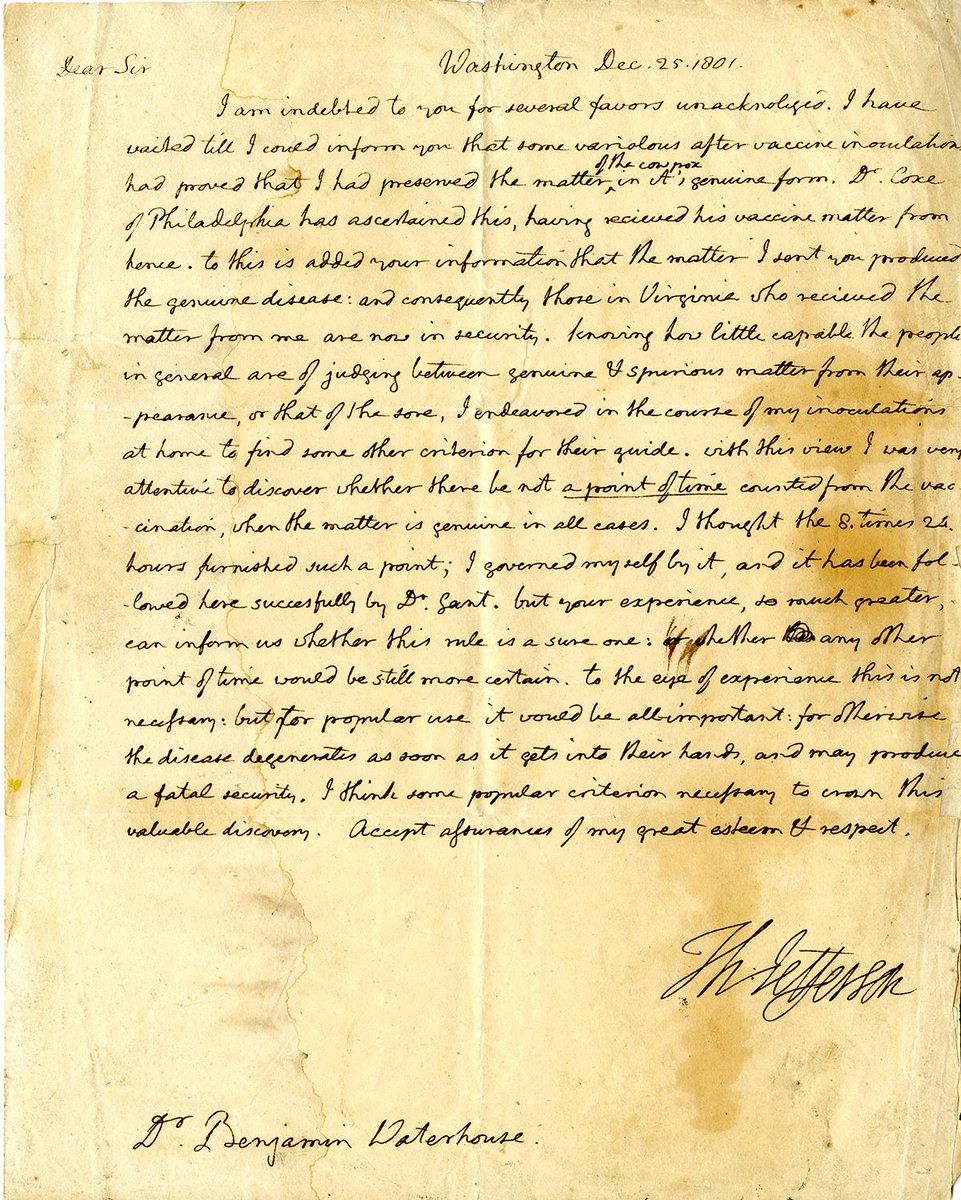 Dear Sir Washington Dec. 25. 1801.
I am indebted to you for several favors unacknoleged. I have
waited till I could inform you that some variolous after vaccine inoculation
had proved that I had preserved the matter of the cow pox in it's genuine form. Dr. Coxe
of Philadelphia has ascertained this, having recieved his vaccine matter from
hence. to this is added your information that the matter I sent you produced
the genuine disease: and consequently those in Virginia who recieved the
matter from me are now in security. knowing how little capable the people
in general are of judging between genuine & spurious matter from their ap-
-pearance, or that of the sore, I endeavored in the course of my inoculations
at home to find some other criterion for their guide. with this view I was very
attentive to discover whether there be not a point of time counted from the vac-
-cination, when the matter is genuine in all cases. I thought the 8. times 24.
hours furnished such a point; I governed myself by it, and it has been fol-
-lowed here succesfully by Dr. Gant. but your experience, so much greater,
can inform us whether this rule is a sure one: or whether any other
point of time would be still more certain. to the eye of experience this is not
necessary: but for popular use it would be all-important: for otherwise
the disease degenerates as soon as it gets into their hands, and may produce
a fatal security. I think some popular criterion necessary to crown this
valuable discovery. Accept assurances of my great esteem & respect.
Th. Jefferson
Dr. Benjamin Waterhouse.